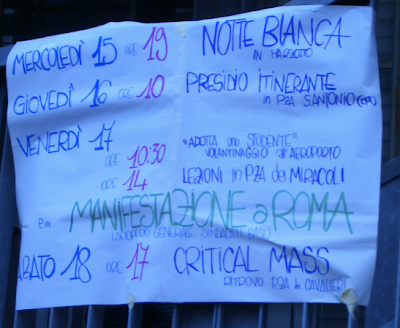 MERCOLEDÌ 15 ORE 19 NOTTE BIANCA
IN
GIOVEDÌ 16 ORE 10 PRESIDIO ITINERANTE
in P.ZA S.ANTONIO
VENERDÌ 17
ORE 10:30 "ADOTTA uno STUDENTE"
VOLANTINAGGIO all'AEROPORTO
ORE 14 LEZIONI in P.ZA dei MIRACOLI
MANIFESTAZIONE a ROMA
(SCIOPERO GENERALE SINDACATI BASE)
ABATO 18 ORE 17 CRITICAL MASS
RITROVO P.ZA dei CAVALIERI